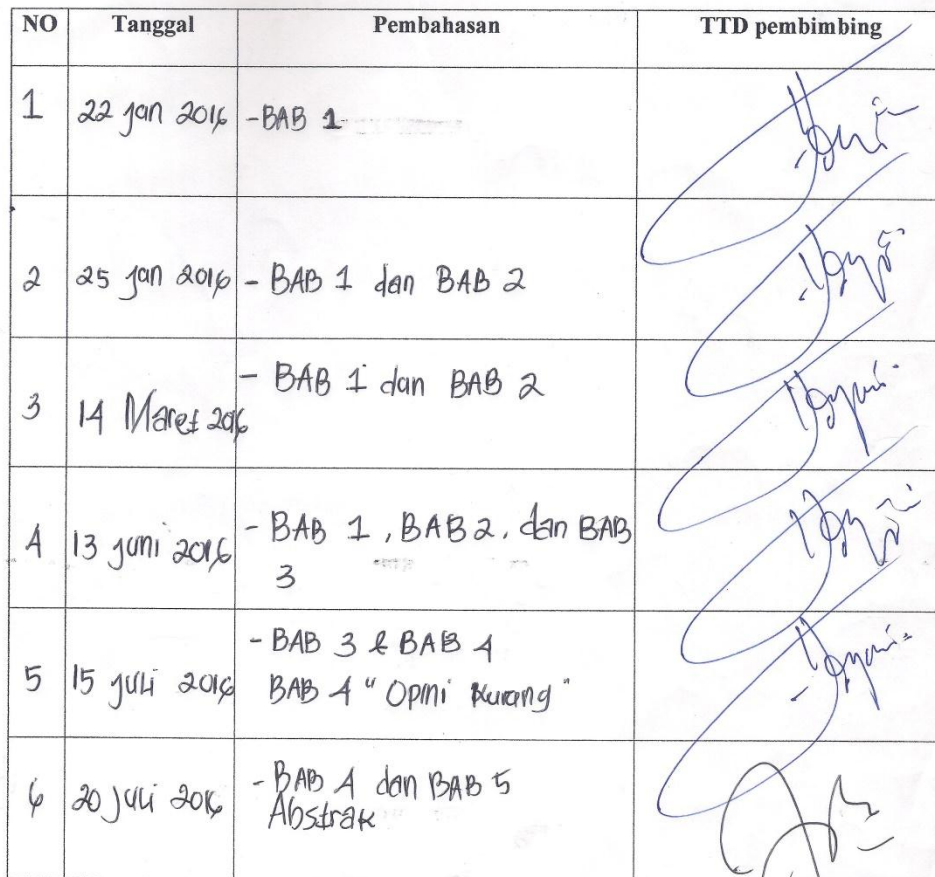 NO Tanggal Pembahasan TTD pembimbing
1 22 jan 2016 - BAB 1
2 25 jan 2016 - BAB 1 dan BAB 2
3 14 Maret 2016 - BAB 1 dan BAB 2
4 13 juni 2016 - BAB 1, BAB 2, dan BAB
3
5 15 juli 2016 - BAB 3 & BAB 4
BAB 4 "Opini kurang"
6 20 juli 2016 - BAB 4 dan BAB 5
Abstrak